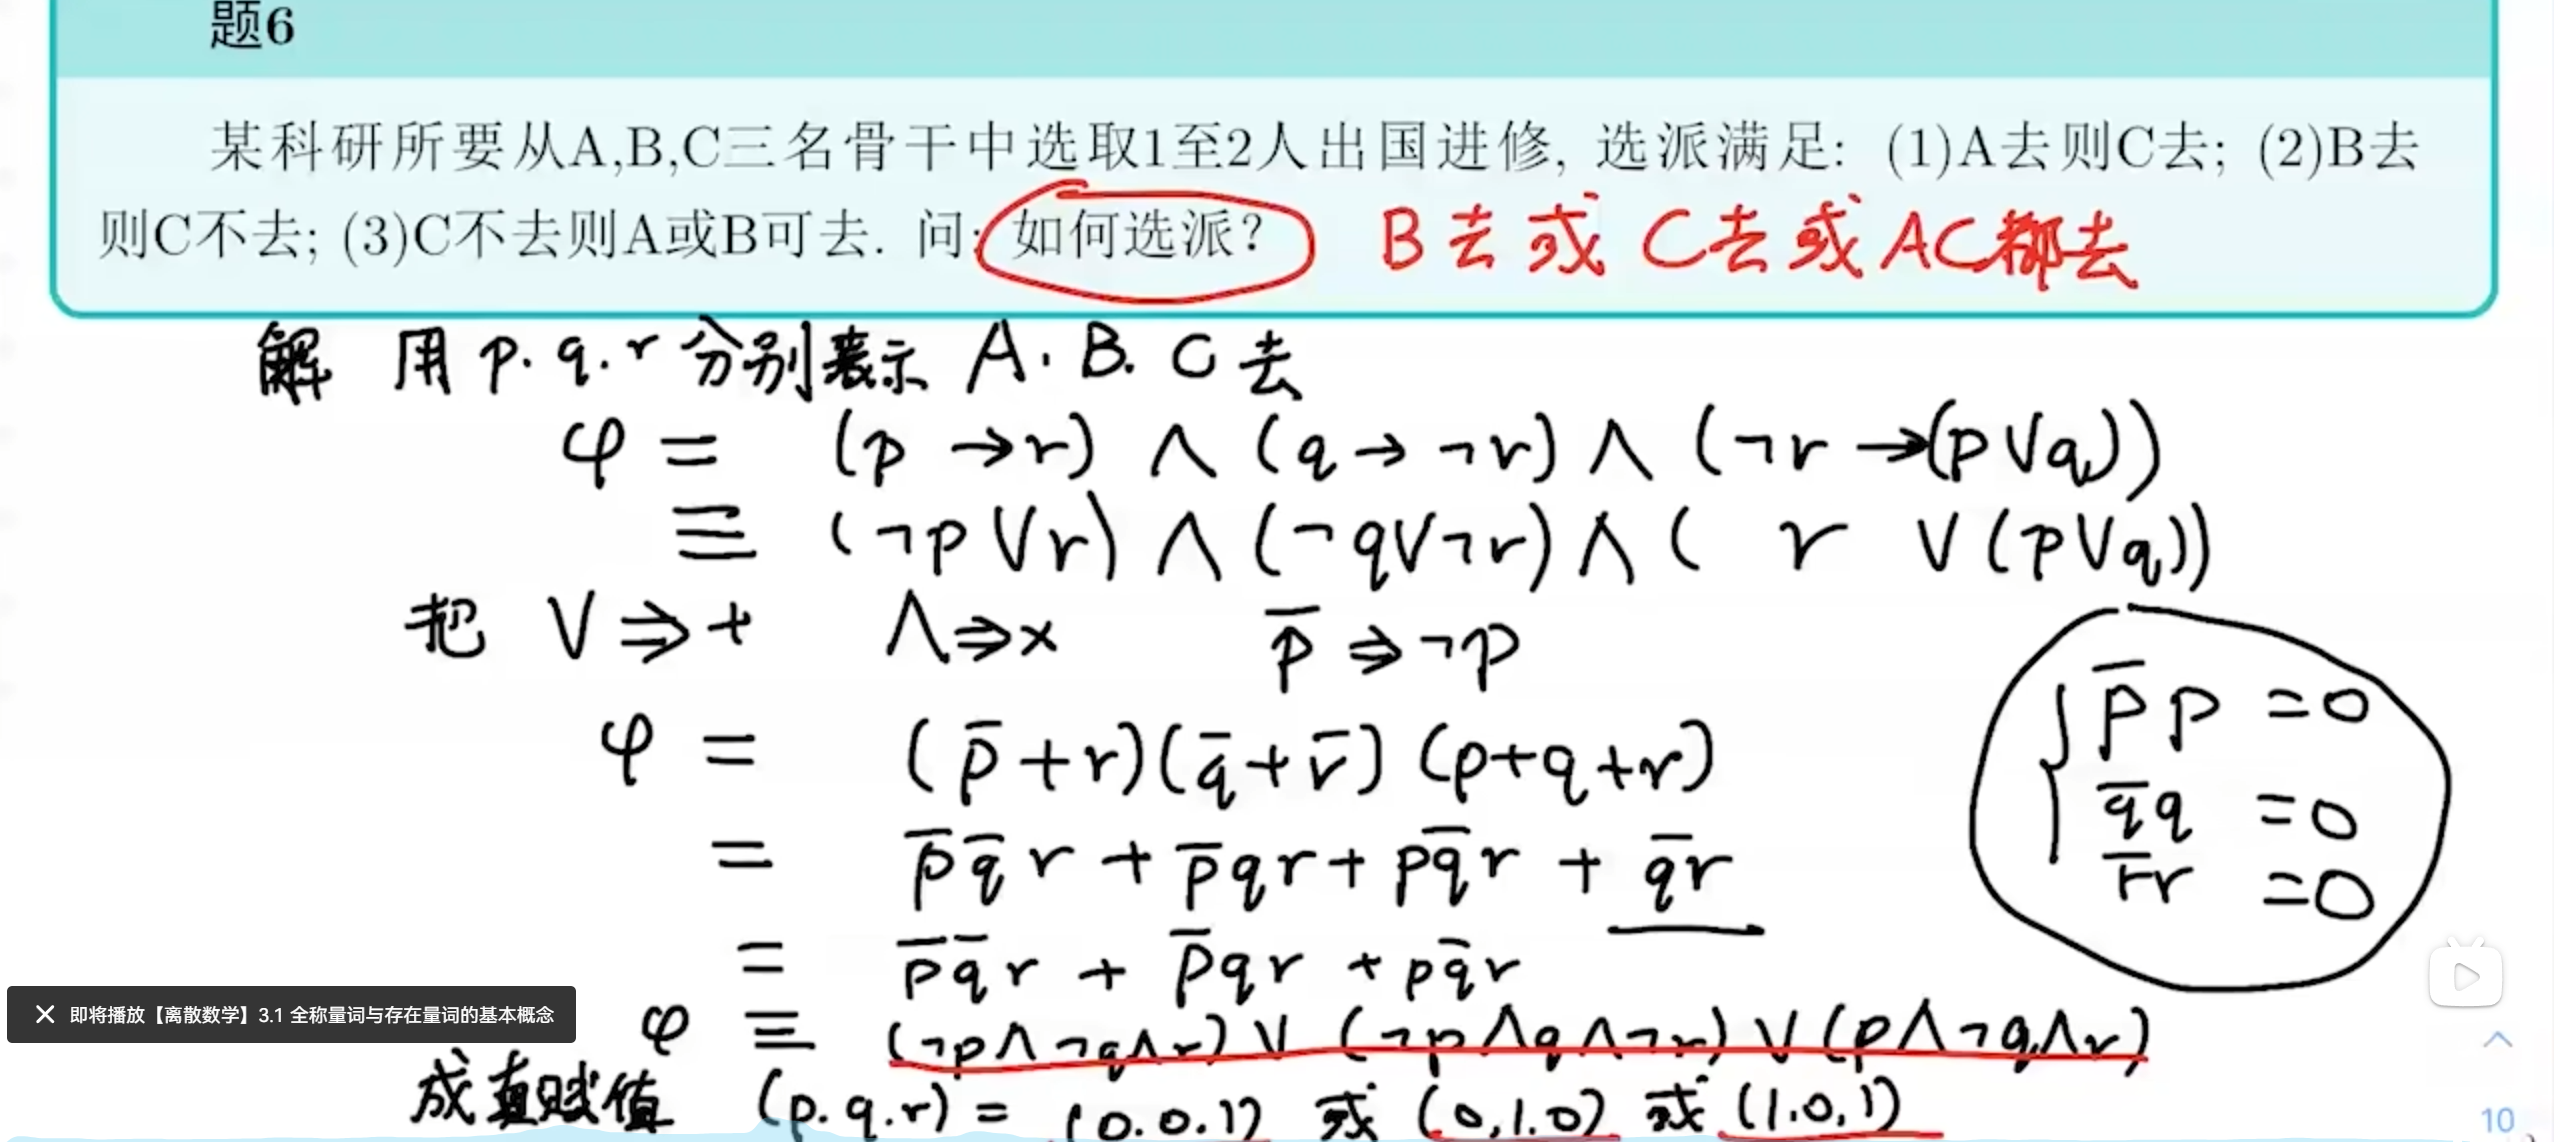 题6
某科研所要从A,B,C三名骨干中选取1至2人出国进修, 选派满足: (1)A去则C去; (2)B去
则C不去; (3)C不去则A或B可去. 问: 如何选派? B去或 C去或 AC都去
解 用 p. q. r 分别表示 A. B. C 去
φ = (p → r) ∧ (q → ¬r) ∧ (¬r → (p∨q))
≡ (¬p∨r) ∧ (¬q∨¬r) ∧ ( r ∨ (p∨q))
把 ∨ ⇒ + ∧ ⇒ × p̅ ⇒ ¬p
φ = (p̅+r)(q̅+r̅)(p+q+r)
= p̅q̅r + p̅qr + pq̅r + q̅r
= p̅q̅r + p̅qr + pq̅r
p̅p = 0
q̅q = 0
r̅r = 0
φ ≡ (¬p∧¬q∧r) ∨ (¬p∧q∧¬r) ∨ (p∧¬q∧r)
成真赋值 (p.q.r) = (0.0.1) 或 (0,1.0) 或 (1.0,1)
即将播放【离散数学】3.1 全称量词与存在量词的基本概念
10